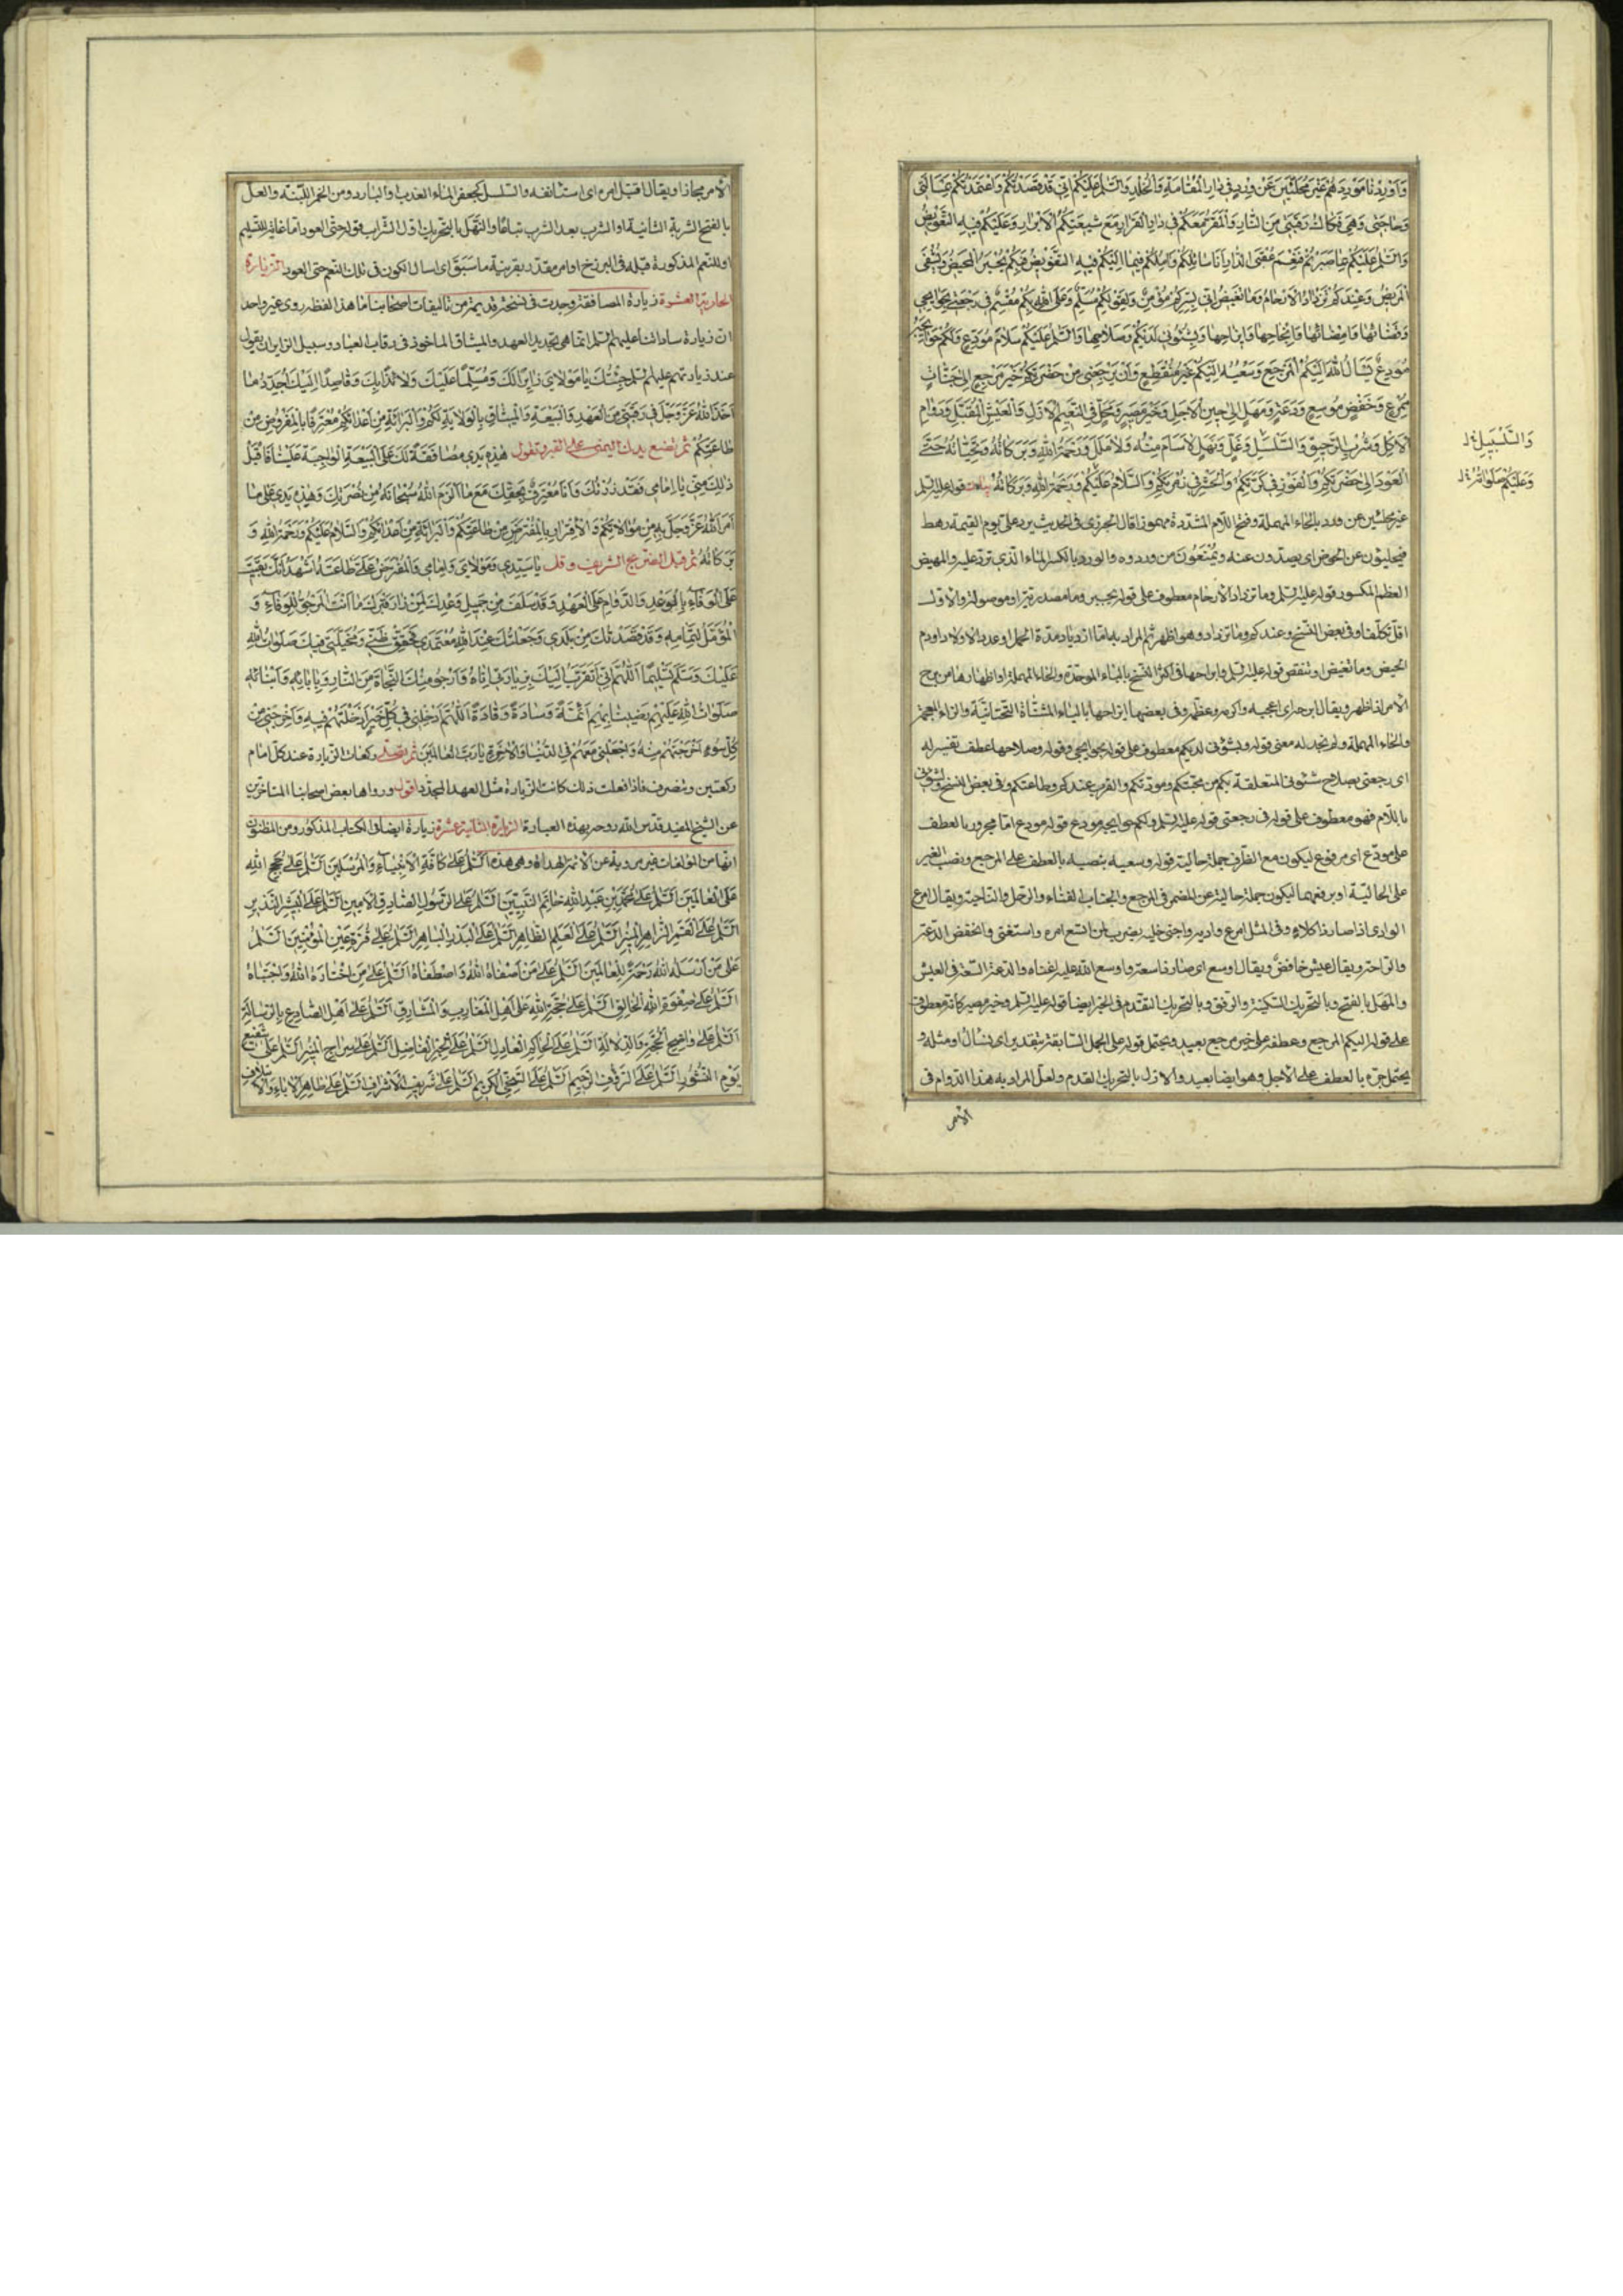 وَاَوْرِدْنا مَوْرِدَهُمْ غَيْرَ مُحَلَّئِينَ عَنْ وِرْدٍ فى دارِ الْمُقامَةِ وَالْخُلْدِ وَالسَّلمُ عَلَيْكُمْ اِنّى قَدْ قَصَدْتُكُمْ وَاعْتَمَدْتُكُمْ بِمَسْأَلَتى
وَحاجَتى وَهِىَ فَكاكُ رَقَبَتى مِنَ النّارِ وَالْمَقَرُّ مَعَكُمْ فى دارِ الْقَرارِ مَعَ شيعَتِكُمُ الْاَبْرارِ وَعَلَيْكُمْ فيهِ التَّفْويضُ
وَالسَّلمُ عَلَيْكُمْ بِما صَبَرْتُمْ فَنِعْمَ عُقْبَى الدّارِ اَنَا سائِلُكُمْ وَآمِلُكُمْ فيما اِلَيْكُمْ فيهِ التَّفْويضُ فَبِكُمْ يُجْبَرُ الْمَهيضُ وَيُشْفَى
الْمَريضُ وَعِنْدَكُمْ تَزْدادُ الْاَرْحامُ وَما تَغيضُ اِنّى بِسِرِّكُمْ مُؤْمِنٌ وَلِقَوْلِكُمْ مُسَلِّمٌ وَعَلَى اللهِ بِكُمْ مُقْسِمٌ فى رَجْعَتى بِحَوائِجى
وَقَضائِها وَاِمْضائِها وَاِنْجاحِها وَاِبْراحِها وَبِشُئُونى لَدَيْكُمْ وَصَلاحِها وَالسَّلمُ عَلَيْكُمْ سَلامَ مُوَدِّعٍ وَلَكُمْ حَوائِجَهُ
مُودِعٌ يَسْأَلُ اللهَ اِلَيْكُمُ الْمَرْجِعَ وَسَعْيُهُ اِلَيْكُمْ غَيْرَ مُنْقَطِعٍ وَاَنْ يَرْجِعَنى مِنْ حَضْرَتِكُمْ خَيْرَ مَرْجِعٍ اِلى جَنابٍ
مُمْرِعٍ وَخَفْضٍ مُوسِعٍ وَدَعَةٍ وَمَهَلٍ اِلى حينِ الْاَجَلِ وَخَيْرِ مَصيرٍ وَمَحَلٍّ فِى النَّعيمِ الْاَزَلِ وَالْعَيْشِ الْمُقْتَبَلِ وَدَوامِ
الْاُكُلِ وَشُرْبِ الرَّحيقِ وَالسَّلْسَلِ وَعَلٍّ وَنَهَلٍ لاسَاَمَ مِنْهُ وَلا مَلَلَ وَرَحْمَةُ اللهِ وَبَرَكاتُهُ وَتَحِيّاتُهُ حَتّى
الْعَوْدِ اِلى حَضْرَتِكُمْ وَالْفَوْزِ فى كَرَّتِكُمْ وَالْحَشْرِ فى زُمْرَتِكُمْ وَالسَّلامُ عَلَيْكُمْ وَرَحْمَةُ اللهِ وَبَرَكاتُهُ قوله عليه السلم
غير محلئين عن ورد بالحاء المهملة وفتح اللام المشددة مهموزا قال الجزرى فى الحديث يرد على يوم القيمة رهط
فيحلئون عن الحوض اى يصدون عنه ويُمْنَعُونَ من وروده والورد بالكسر الماء الذى ترد عليه والمهيض
العظم المكسور قوله عليه السلم وما تزداد الارحام معطوف على قوله يجبر وما مصدرية او موصولة والاول
اقل تكلفا وفى بعض النسخ وعندكم وما تزداد وهو اظهر ثم المراد به اما ازدياد مدة الحمل او عدد الاولاد او دم
الحيض وما تغيض اى تنقص قوله عليه السلم وابراحها فى اكثر النسخ بالباء الموحدة والحاء المهملة او اظهارها من برح
الامر اذا ظهر ويقال ابرحه اى اعجبه واكرمه وعظمه وفى بعضها ايزاحها بالياء المثناة التحتانية والزاء المعجمة
والحاء المهملة ولم نجد له معنى قوله وبشؤنى لديكم معطوف على قوله بحوائجى وقوله وصلاحها عطف تفسير له
اى رجعنى بصلاح شئونى المتعلقة بكم من محبتكم ومودتكم والقرب عندكم وطاعتكم وفى بعض النسخ ولشؤنى
باللام فهو معطوف على قوله فى رجعتى قوله عليه السلم ولكم حوائجه مودع قوله مودع اما مجرور بالعطف
على مودع اى مرفوع ليكون مع الظرف جملة حالية قوله وسعيه بنصبه بالعطف على المرجع ونصب الغير
على الحالية او برفعهما ليكون جملة حالية عن المضمر فى المرجع والجناب الفناء والرحل والناحية ويقال امرع
الوادى اذا صار ذا كلاء وفى المثل امرع واديه واجنى حلبه يضرب لمن اتسع امره واستغنى والخفض الدعة
والراحة ويقال عيش خافضٌ ويقال اوسع اى صار ذا سعة واوسع الله عليه اغناه والدعة السعة فى العيش
والمهل بالفتح وبالتحريك السكينة والرفق وبالتحريك التقدم فى الخير ايضا قوله عليه السلم وخير مصير كانه معطوف
على قوله اليكم المرجع وعطفه على خير مرجع بعيد ويحتمل قوله على الجمل السابقة بتقدير اى يسأل او مثله و
يحتمل جره بالعطف على الاجل وهو ايضا بعيد والازل بالتحريك القدم ولعل المراد به هذا الدوام فى
الامر
وَالسَّلْسَبيلِ خ ل
وَعَلَيْكُمْ صَلَواتُ خ ل
الامر مجازا ويقال اقتبل امره اى استأنفه والسلسل كجعفر الماء العذب او البارد ومن الخمر اللينة والعل
بالفتح الشربة الثانية او الشرب بعد الشرب تباعًا والنهل بالتحريك اول الشراب قوله حتى العود اما غاية للتسليم
او للنعم المذكورة قبله فى البرزخ او امر مقدر بقرينة ما سبق اى اسال الكون فى تلك النعم حتى العود الزيارة
الحادية العشرة زيارة المصافقة وجدت فى نسخة قديمة من تاليفات اصحابنا ما هذا لفظه روى غير واحد
ان زيارة ساداتنا عليهم السلم انما هى تجديد العهد والميثاق الماخوذ فى رقاب العباد وسبيل الزائر ان يقول
عند زيارتهم عليهم السلم جِئْتُكَ يا مَوْلاىَ زائِرًا لَكَ وَمُسَلِّمًا عَلَيْكَ وَلائِذًا بِكَ وَقاصِدًا اِلَيْكَ اُجَدِّدُ ما
اَخَذَ اللهُ عَزَّ وَجَلَّ فى رَقَبَتى مِنَ الْعَهْدِ وَالْبَيْعَةِ وَالْميثاقِ بِالْوِلايَةِ لَكُمْ وَالْبَرائَةِ مِنْ اَعْدائِكُمْ مُعْتَرِفًا بِالْمَفْرُوضِ مِنْ
طاعَتِكُمْ ثم تضع يدك اليمنى على القبر وتقول هذِهِ يَدى مُصافِقَةٌ لَكَ عَلَى الْبَيْعَةِ الْواجِبَةِ عَلَيْنا فَاقْبَلْ
ذلِكَ مِنّى يا اِمامى فَقَدْ زُرْتُكَ وَاَنَا مُعْتَرِفٌ بِحَقِّكَ مَعَ ما اَلْزَمَ اللهُ سُبْحانَهُ مِنْ نُصْرَتِكَ وَهذِهِ يَدى عَلى ما
اَمَرَ اللهُ عَزَّ وَجَلَّ بِهِ مِنْ مُوالاتِكُمْ وَالْاِقْرارِ بِالْمُفْتَرَضِ مِنْ طاعَتِكُمْ وَالْبَرائَةِ مِنْ اَعْدائِكُمْ وَالسَّلامُ عَلَيْكُمْ وَرَحْمَةُ اللهِ وَ
بَرَكاتُهُ ثم قبل الضريح الشريف وقل يا سَيِّدى وَمَوْلاىَ وَاِمامى وَالْمُفْتَرَضُ عَلَىَّ طاعَتُهُ اَشْهَدُ اَنَّكَ بَقيتَ
عَلَى الْوَفاءِ بِالْوَعْدِ وَالدَّوامِ عَلَى الْعَهْدِ وَقَدْ سَلَفَ مِنْ جَميلِ وَعْدِكَ لِمَنْ زارَ قَبْرَكَ ما اَنْتَ الْمَرْجُوُّ لِلْوَفاءِ وَ
الْمُؤَمَّلُ لِتَمامِهِ وَقَدْ قَصَدْتُكَ مِنْ بَلَدى وَجَعَلْتُكَ عِنْدَ اللهِ مُعْتَمَدى فَحَقِّقْ ظَنّى وَمُخَيَّلَتى فيكَ صَلَواتُ اللهِ
عَلَيْكَ وَسَلَّمَ تَسْليمًا اَللّهُمَّ اِنّى اَتَقَرَّبُ اِلَيْكَ بِزِيارَتى اِيّاهُ وَاَرْجُو مِنْكَ النَّجاةَ مِنَ النّارِ وَبِآبائِهِ وَاَبْنائِهِ
صَلَواتُ اللهِ عَلَيْهِمْ رَضينا بِهِمْ اَئِمَّةً وَسادَةً وَقادَةً اَللّهُمَّ اَدْخِلْنى فى كُلِّ خَيْرٍ اَدْخَلْتَهُمْ فيهِ وَاَخْرِجْنى مِنْ
كُلِّ سُوءٍ اَخْرَجْتَهُمْ مِنْهُ وَاجْعَلْنى مَعَهُمْ فِى الدُّنْيا وَالْاخِرَةِ يا رَبَّ الْعالَمينَ ثم تصلى ركعات الزيارة عند كل امام
ركعتين وتنصرف فاذا فعلت ذلك كانت الزيارة مثل العهد المجدد اقول ورواها بعض اصحابنا المتاخرين
عن الشيخ المفيد قدس الله روحه بهذه العبارة الزيارة الثانية عشرة زيارة ايضا فى الكتاب المذكور ومن المظنون
انها من المؤلفات غير مروية عن الائمة الهداة وهى هذه اَلسَّلمُ عَلى كافَّةِ الْاَنْبِياءِ وَالْمُرْسَلينَ اَلسَّلمُ عَلى حُجَجِ اللهِ
عَلَى الْعالَمينَ اَلسَّلمُ عَلى مُحَمَّدِ بْنِ عَبْدِ اللهِ خاتَمِ النَّبِيّينَ اَلسَّلمُ عَلَى الرَّسُولِ الصّادِقِ الْاَمينِ اَلسَّلمُ عَلَى الْبَشيرِ النَّذيرِ
اَلسَّلمُ عَلَى الْقَمَرِ الزّاهِرِ الْمُنيرِ اَلسَّلمُ عَلَى الْعَلَمِ الظّاهِرِ اَلسَّلمُ عَلَى الْبَدْرِ الْباهِرِ اَلسَّلمُ عَلى قُرَّةِ عَيْنِ الْمُؤْمِنينَ اَلسَّلمُ
عَلى مَنْ اَرْسَلَهُ اللهُ رَحْمَةً لِلْعالَمينَ اَلسَّلمُ عَلى مَنْ اَصْفاهُ اللهُ وَاصْطَفاهُ اَلسَّلمُ عَلى مَنِ اخْتارَهُ اللهُ وَاجْتَباهُ
اَلسَّلمُ عَلى صَفْوَةِ اللهِ الْخالِقِ اَلسَّلمُ عَلى حُجَّةِ اللهِ عَلى اَهْلِ الْمَغارِبِ وَالْمَشارِقِ اَلسَّلمُ عَلى اَهْلِ الصّادِعِ بِالرِّسالَةِ
اَلسَّلمُ عَلى واضِحِ الْحُجَّةِ وَالدَّلالَةِ اَلسَّلمُ عَلَى الْحاكِمِ الْعادِلِ اَلسَّلمُ عَلَى الْفاضِلِ اَلسَّلمُ عَلَى السِّراجِ الْمُنيرِ اَلسَّلمُ عَلى شَفيعِ
يَوْمِ النُّشُورِ اَلسَّلمُ عَلَى الرَّؤُفِ الرَّحيمِ اَلسَّلمُ عَلَى السَّخِىِّ الْكَريمِ اَلسَّلمُ عَلى شَريفِ الْاَشْرافِ اَلسَّلمُ عَلى طاهِرِ الْاباءِ وَالْاَسْلافِ